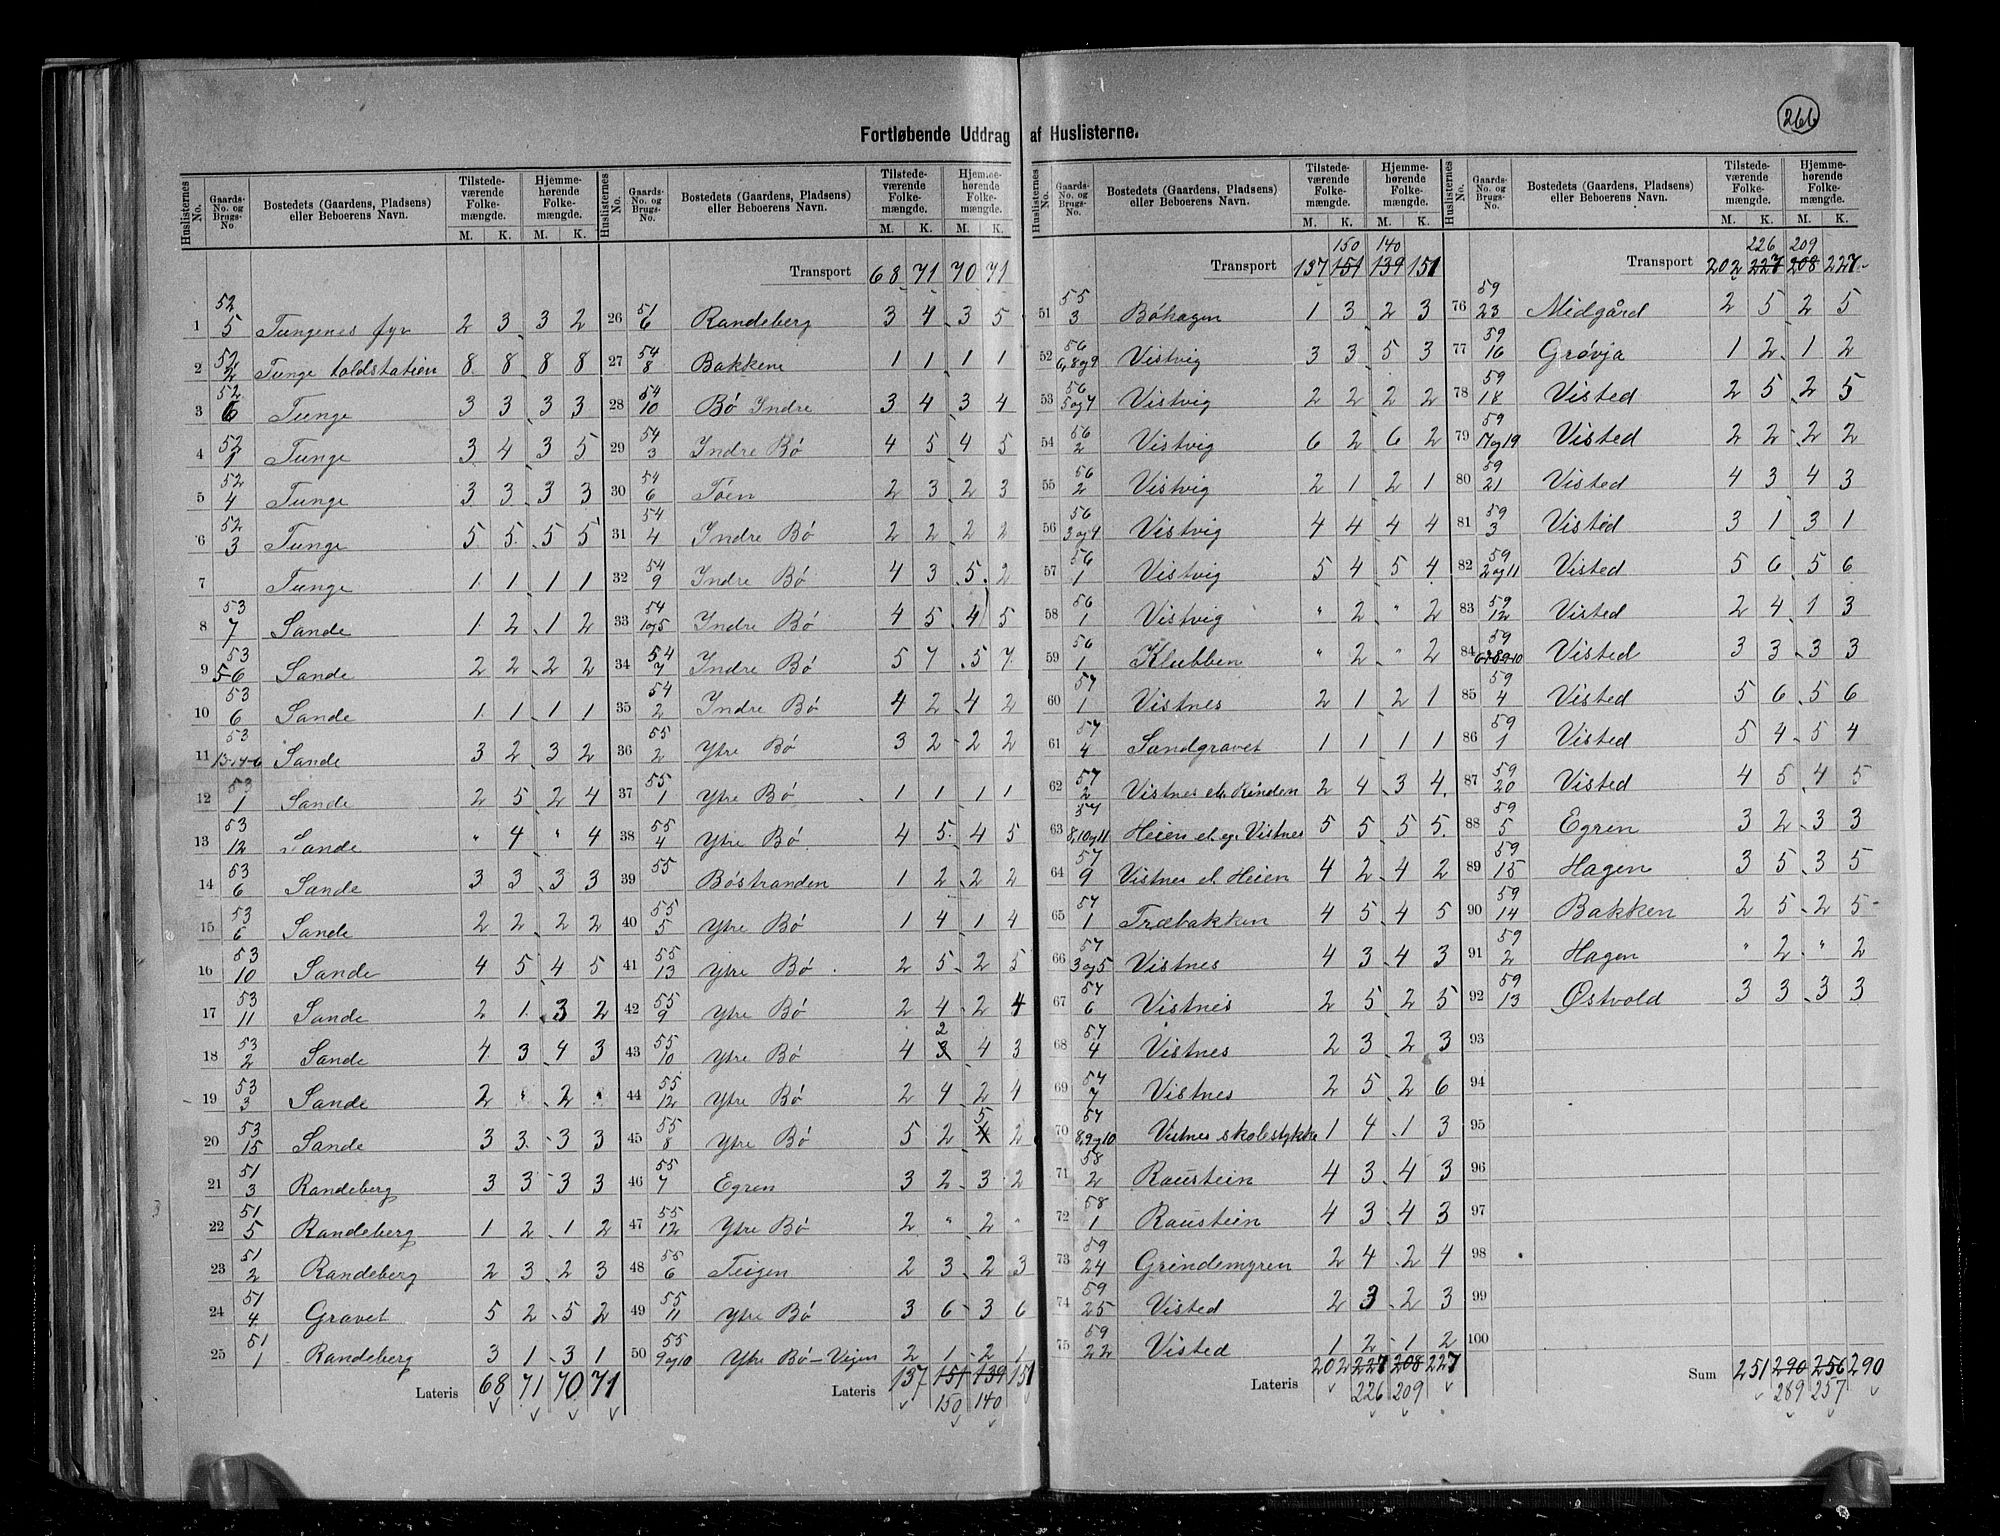 266
Fortløbende Uddrag af Huslisterne.
Huslisternes No. | Gaards-No. og Brugs-No. | Bostedets (Gaardens, Pladsens) eller Beboerens Navn. | Tilstedeværende Folkemængde. M. K. | Hjemmehørende Folkemængde. M. K.
1 52/5 Tungenes fyr 2 3 3 2
2 52/2 Tunge toldstation 8 8 8 8
3 52/6 Tunge 3 3 3 3
4 52/1 Tunge 3 4 3 5
5 52/4 Tunge 3 3 3 3
6 52/3 Tunge 5 5 5 5
7 Tunge 1 1 1 1
8 53/7 Sande 1 2 1 2
9 53/5-6 Sande 2 2 2 2
10 53/6 Sande 1 1 1 1
11 53/13-14-6 Sande 3 2 3 2
12 53/1 Sande 2 5 2 4
13 53/12 Sande " 4 " 4
14 53/6 Sande 3 3 3 3
15 53/6 Sande 2 2 2 2
16 53/10 Sande 4 5 4 5
17 53/11 Sande 2 1 3 2
18 53/2 Sande 4 3 4 3
19 53/3 Sande 2 " 2 "
20 53/15 Sande 3 3 3 3
21 51/3 Randeberg 3 3 3 3
22 51/5 Randeberg 1 2 1 2
23 51/2 Randeberg 2 3 2 3
24 51/4 Gravet 5 2 5 2
25 51/1 Randeberg 3 1 3 1
Lateris 68 71 70 71
Huslisternes No. | Gaards-No. og Brugs-No. | Bostedets (Gaardens, Pladsens) eller Beboerens Navn. | Tilstedeværende Folkemængde. M. K. | Hjemmehørende Folkemængde. M. K.
Transport 68 71 70 71
26 51/6 Randeberg 3 4 3 5
27 54/8 Bakkene 1 1 1 1
28 54/10 Bø Indre 3 4 3 4
29 54/3 Indre Bø 4 5 4 5
30 54/6 Tøen 2 3 2 3
31 54/4 Indre Bø 2 2 2 2
32 54/9 Indre Bø 4 3 5 2
33 54/1og5 Indre Bø 4 5 4 5
34 54/7 Indre Bø 5 7 5 7
35 54/2 Indre Bø 4 2 4 2
36 55/2 Ytre Bø 3 2 2 2
37 55/1 Ytre Bø 1 1 1 1
38 55/4 Ytre Bø 4 5 4 5
39 55 Bøstranden 1 2 2 2
40 55/5 Ytre Bø 1 4 1 4
41 55/13 Ytre Bø 2 5 2 5
42 55/9 Ytre Bø 2 4 2 4
43 55/10 Ytre Bø 4 3 2 4 3
44 55/12 Ytre Bø 2 4 2 4
45 55/8 Ytre Bø 5 2 4 5 2
46 55/7 Egren 3 2 3 2
47 55/12 Ytre Bø 2 " 2 "
48 55/6 Teigen 2 3 2 3
49 55/11 Ytre Bø 3 6 3 6
50 55/9og10 Ytre Bø - Vigen 2 1 2 1
Lateris 137 151 139 151
150 140
Huslisternes No. | Gaards-No. og Brugs-No. | Bostedets (Gaardens, Pladsens) eller Beboerens Navn. | Tilstedeværende Folkemængde. M. K. | Hjemmehørende Folkemængde. M. K.
150 140
Transport 137 151 139 151
51 55/3 Bøhagen 1 3 2 3
52 56/6,8og9 Vistvig 3 3 5 3
53 56/5og7 Vistvig 2 2 2 2
54 56/2 Vistvig 6 2 6 2
55 56/2 Vistvig 2 1 2 1
56 56/3og4 Vistvig 4 4 4 4
57 56/1 Vistvig 5 4 5 4
58 56/1 Vistvig " 2 " 2
59 56/1 Klubben " 2 " 2
60 57/1 Vistnes 2 1 2 1
61 57/4 Sandgravet 1 1 1 1
62 57/2 Vistnes el. Rinden 2 4 3 4
63 57/8,10og11 Heien el. g. Vistnes 5 5 5 5
64 57/9 Vistnes el. Heien 4 2 4 2
65 57/1 Træbakken 4 5 4 5
66 57/3og5 Vistnes 4 3 4 3
67 57/6 Vistnes 2 5 2 5
68 57/4 Vistnes 2 3 2 3
69 57/7 Vistnes 2 5 2 6
70 57/8,9og10 Vistnes skolestykke 1 4 1 3
71 58/2 Raustein 4 3 4 3
72 58/1 Raustein 4 3 4 3
73 59/24 Grindemyren 2 4 2 4
74 59/25 Visted 2 3 2 3
75 59/22 Visted 1 2 1 2
Lateris 202 227 208 227
226 209
Huslisternes No. | Gaards-No. og Brugs-No. | Bostedets (Gaardens, Pladsens) eller Beboerens Navn. | Tilstedeværende Folkemængde. M. K. | Hjemmehørende Folkemængde. M. K.
226 209
Transport 202 227 208 227
76 59/23 Midgård 2 5 2 5
77 59/16 Grøvja 1 2 1 2
78 59/18 Visted 2 5 2 5
79 59/17og19 Visted 2 2 2 2
80 59/21 Visted 4 3 4 3
81 59/3 Visted 3 1 3 1
82 59/2og11 Visted 5 6 5 6
83 59/12 Visted 2 4 1 3
84 59 Visted 3 3 3 3
85 59/4 Visted 5 6 5 6
86 59/1 Visted 5 4 5 4
87 59/20 Visted 4 5 4 5
88 59/5 Egren 3 2 3 3
89 59/15 Hagen 3 5 3 5
90 59/14 Bakken 2 5 2 5
91 59/2 Hagen " 2 " 2
92 59/13 Østvold 3 3 3 3
93
94
95
96
97
98
99
100
Sum 251 290 256 290
289 257